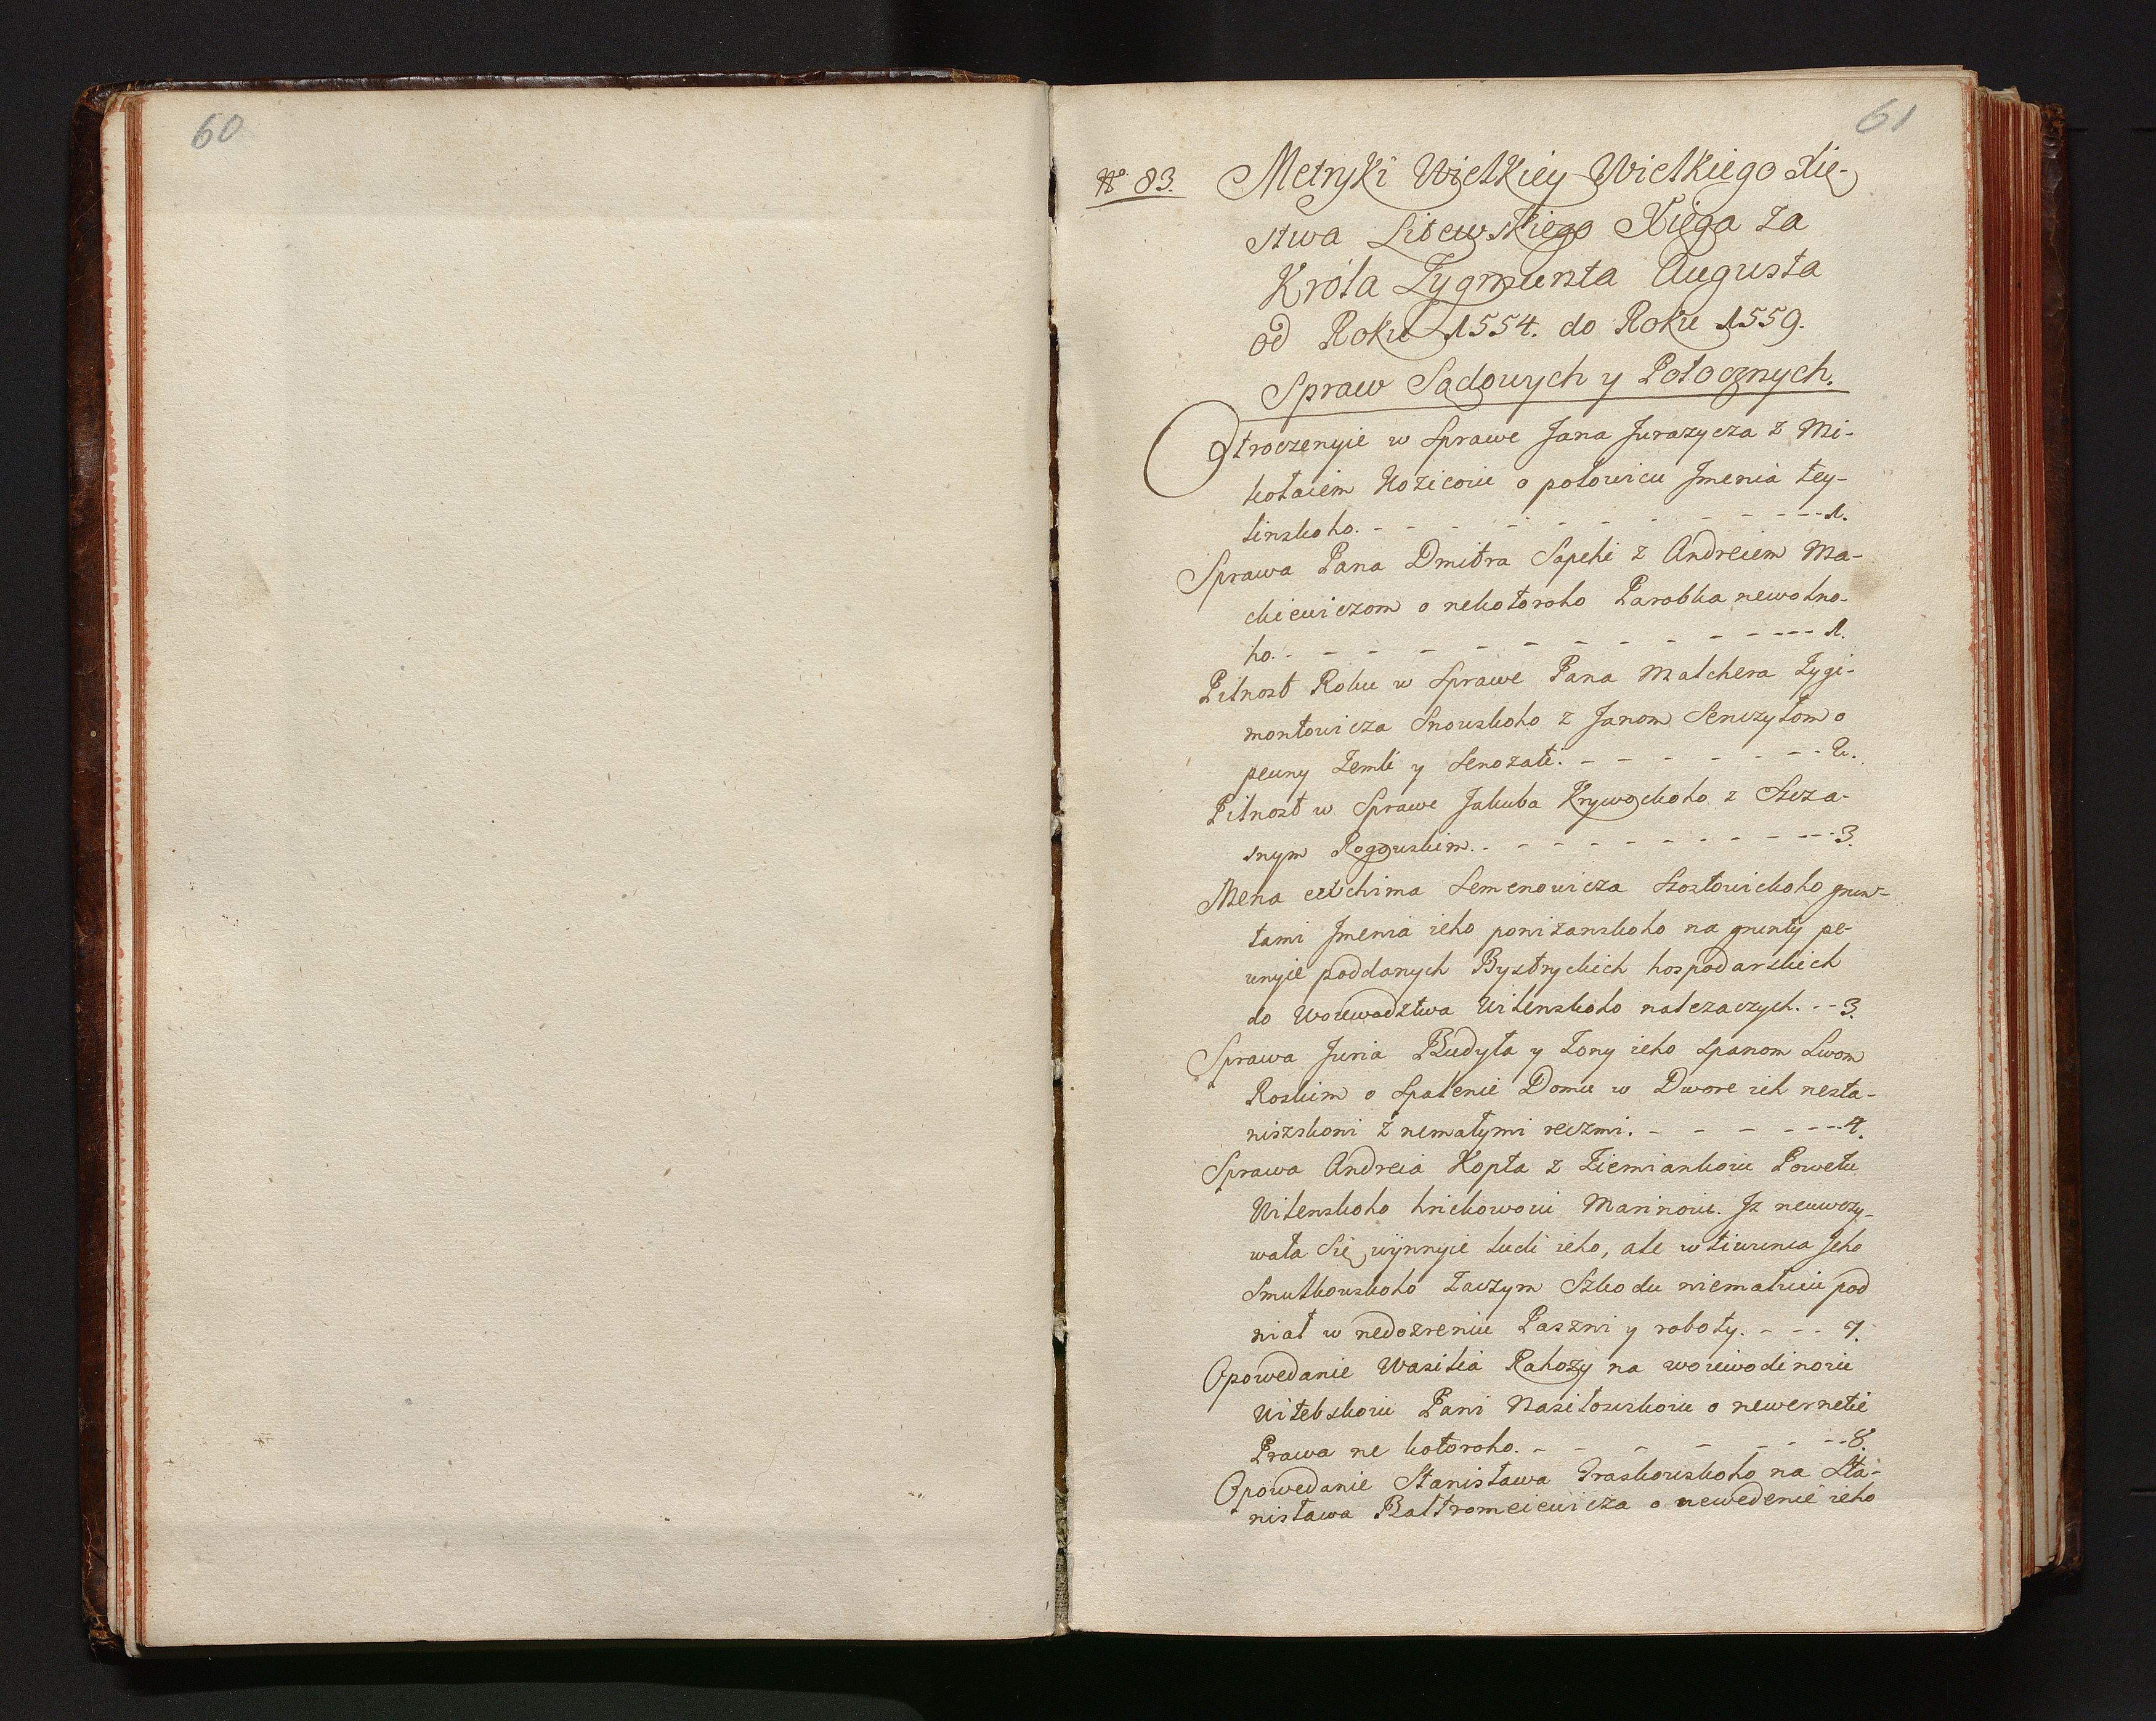 60
61
No 83. Metryki Wielkiey Wielkiego Xię-
stwa Litewskiego Xięga za
Króla Zygmunta Augusta
od Roku 1554. do Roku 1559.
Spraw Sądowych y Potocznych.
Otroczenyie w Sprawe Jana Jurazycza z Mi-
kołaiem Nozicoiu o połowicu Jmenia Ley-
linskoho. 1.
Sprawa Pana Dmitra Sapehi z Andreiem Ma-
ckiewiczom o nekotoroho Parobka newolno-
ho. 1.
Pilnost Roku w Sprawe Pana Malchera Zygi-
montowicza Snowskoho z Janom Senczyłom o
pewny Zemli y Senozati. 2.
Pilnost w Sprawe Jakuba Krywockoho z Szcza-
snym Rogowskim. 3.
Mena Semenowicza Szostowickoho grun-
tami Jmenia ieho poniżanskoho na grunty pe-
wnyie poddanych Bystryckich hospodarskich
do Woiewodztwa Wilenskoho nalezaczych. 3.
Sprawa Juria Budyła y Zony ieho Spanom Lwom
Roskim o Spalenie Domu w Dwore ich nesta-
niszskom z nemałymi reczmi. 4.
Sprawa Andreia Kopta z Ziemiankoiu Powetu
Wilenskoho hrickowoiu Marinoiu. Jz neuwczy-
wała Się wynnyie ludi ieho, ale w tiwunca Jeho
Smulkowskoho Zaczym Szkodu niemałuiu pod
niał w nedozreniu Paszni y roboty. 7.
Opowedanie Wasilia Rahozy na woiewodinoiu
Witebskoiu Pani Masilowskoiu o newernetie
Prawa ne kotoroho. 8.
Opowedanie Stanisława Graskowskoho na Sta-
nisława Baltromeiewicza o newedenie ieho